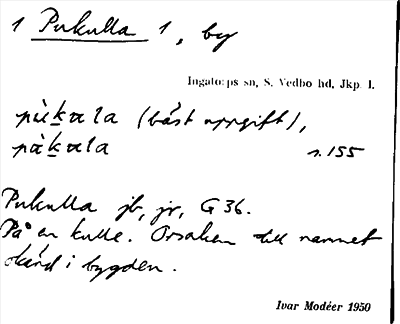 1 Pukulla 1, by
Ingatorps sn, S. Vedbo hd, Jkp. l.
pùkala (bäst uppgift),
pàkala s. 155
Pukulla jb, jr, G 36.
På en kulle. Orsaken till namnet
okänd i bygden.
Ivar Modéer 1950